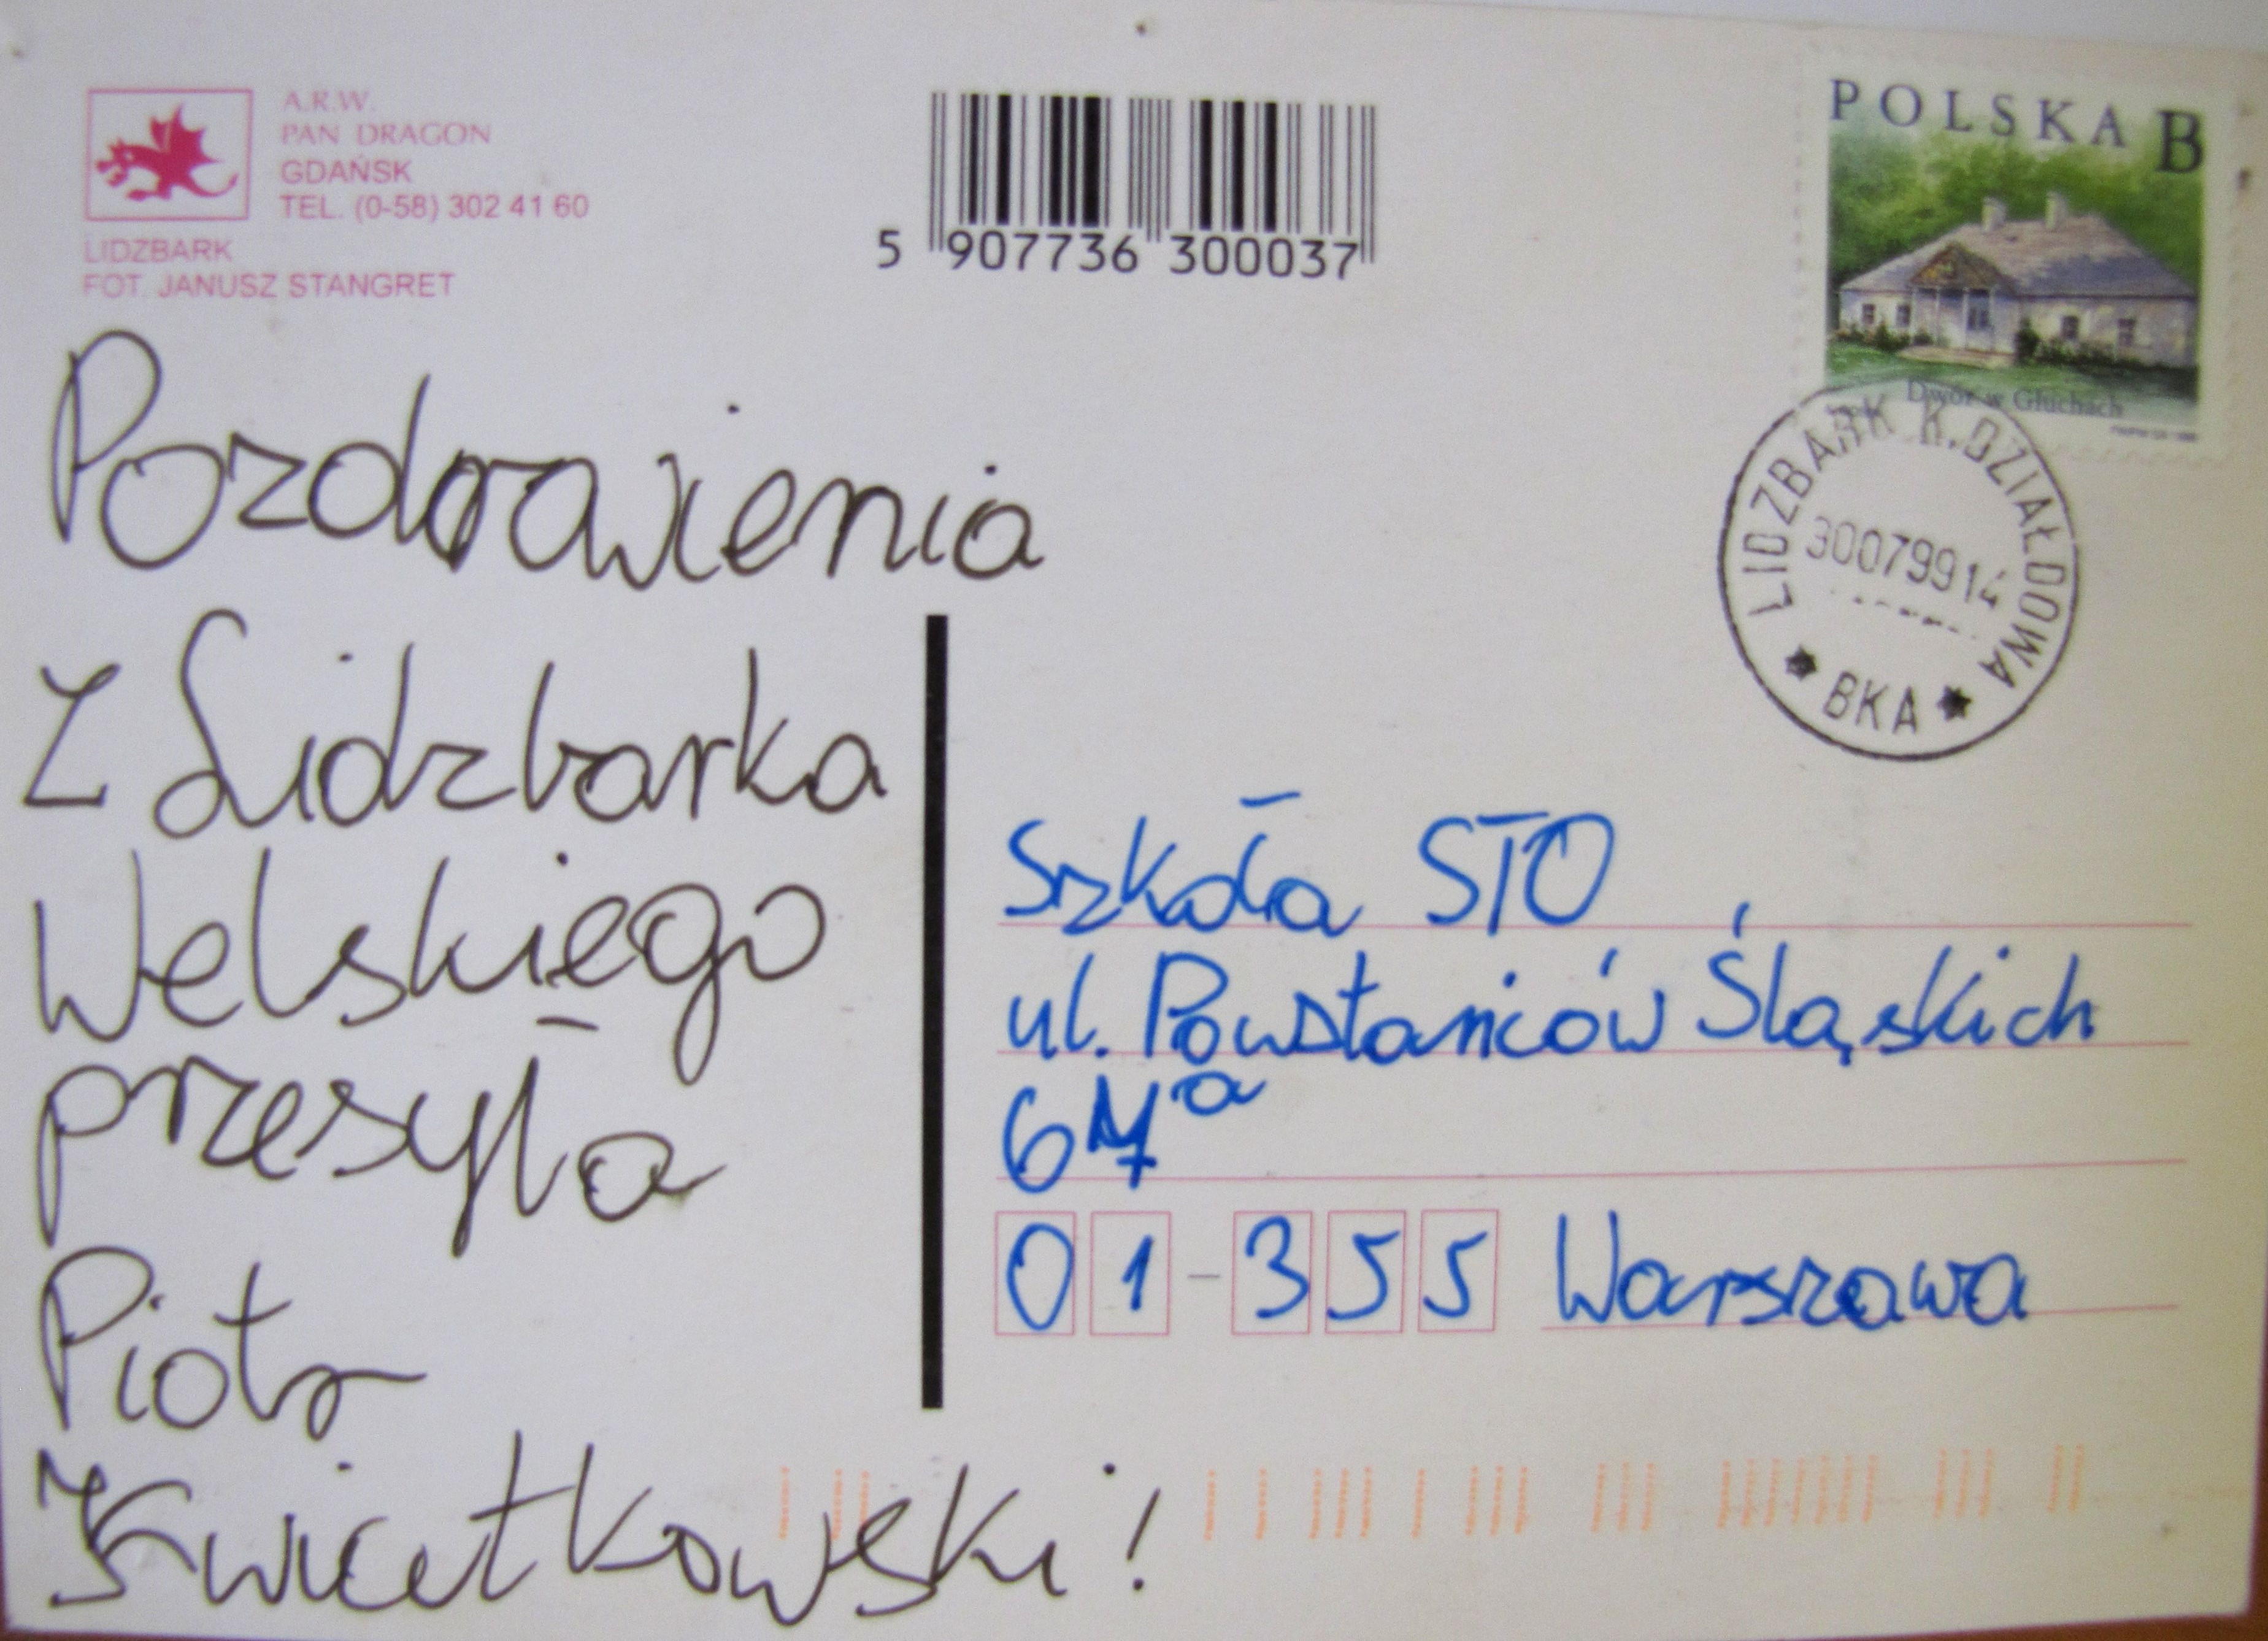 A.R.W.
PAN DRAGON
GDAŃSK
TEL. (0-58) 302 41 60
LIDZBARK
FOT. JANUSZ STANGRET
5 907736 300037
POLSKA B
Dwór w Głuchach
LIDZBARK K. DZIAŁDOWA
30079914
BKA
Pozdrowienia
Z Lidzbarka
Welskiego
przesyła
Piotr
Kwiatkowski!
Szkoła STO
ul. Powstańców Śląskich
67a
01-355 Warszawa